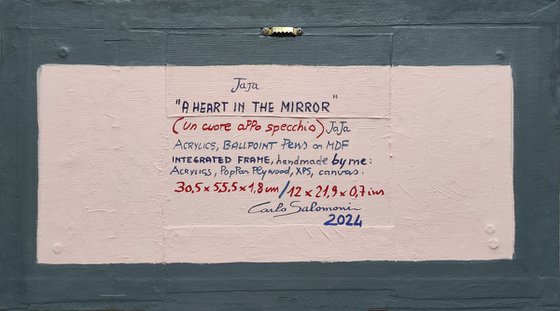 JaJa
"A HEART IN THE MIRROR"
(un cuore allo specchio) JaJa
ACRYLICS, BALLPOINT Pens on MDF
INTEGRATED FRAME, handmade by me:
ACRYLICS, Poplar Plywood, XPS, canvas.
30,5 x 55,5 x 1,8 cm / 12 x 21,9 x 0,7 ins
Carlo Salomoni
2024